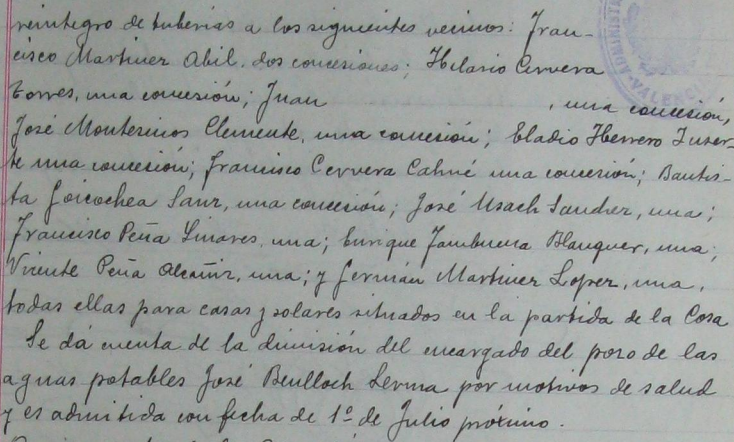 reintegro de tuberias a los siguientes vecinos: Fran-
cisco Martinez Abil, dos concesiones; Hilario Cervera
Torres, una concesión; Juan , una concesión,
José Montesinos Clemente, una concesión; Eladio Herrero Inser-
te una concesión; Francisco Cervera Cahné una concesión; Bautis-
ta Goicochea Sanz, una concesión; José Usach Sanchez, una;
Francisco Peña Linares, una; Enrique Tambuena Blanquer, una;
Vicente Peña Alcañiz, una; y Germán Martinez Lopez, una,
todas ellas para casas y solares situados en la partida de la Cosa
Se dá cuenta de la dimisión del encargado del pozo de las
aguas potables José Benlloch Lerma por motivos de salud
y es admitida con fecha de 1º de Julio próximo.